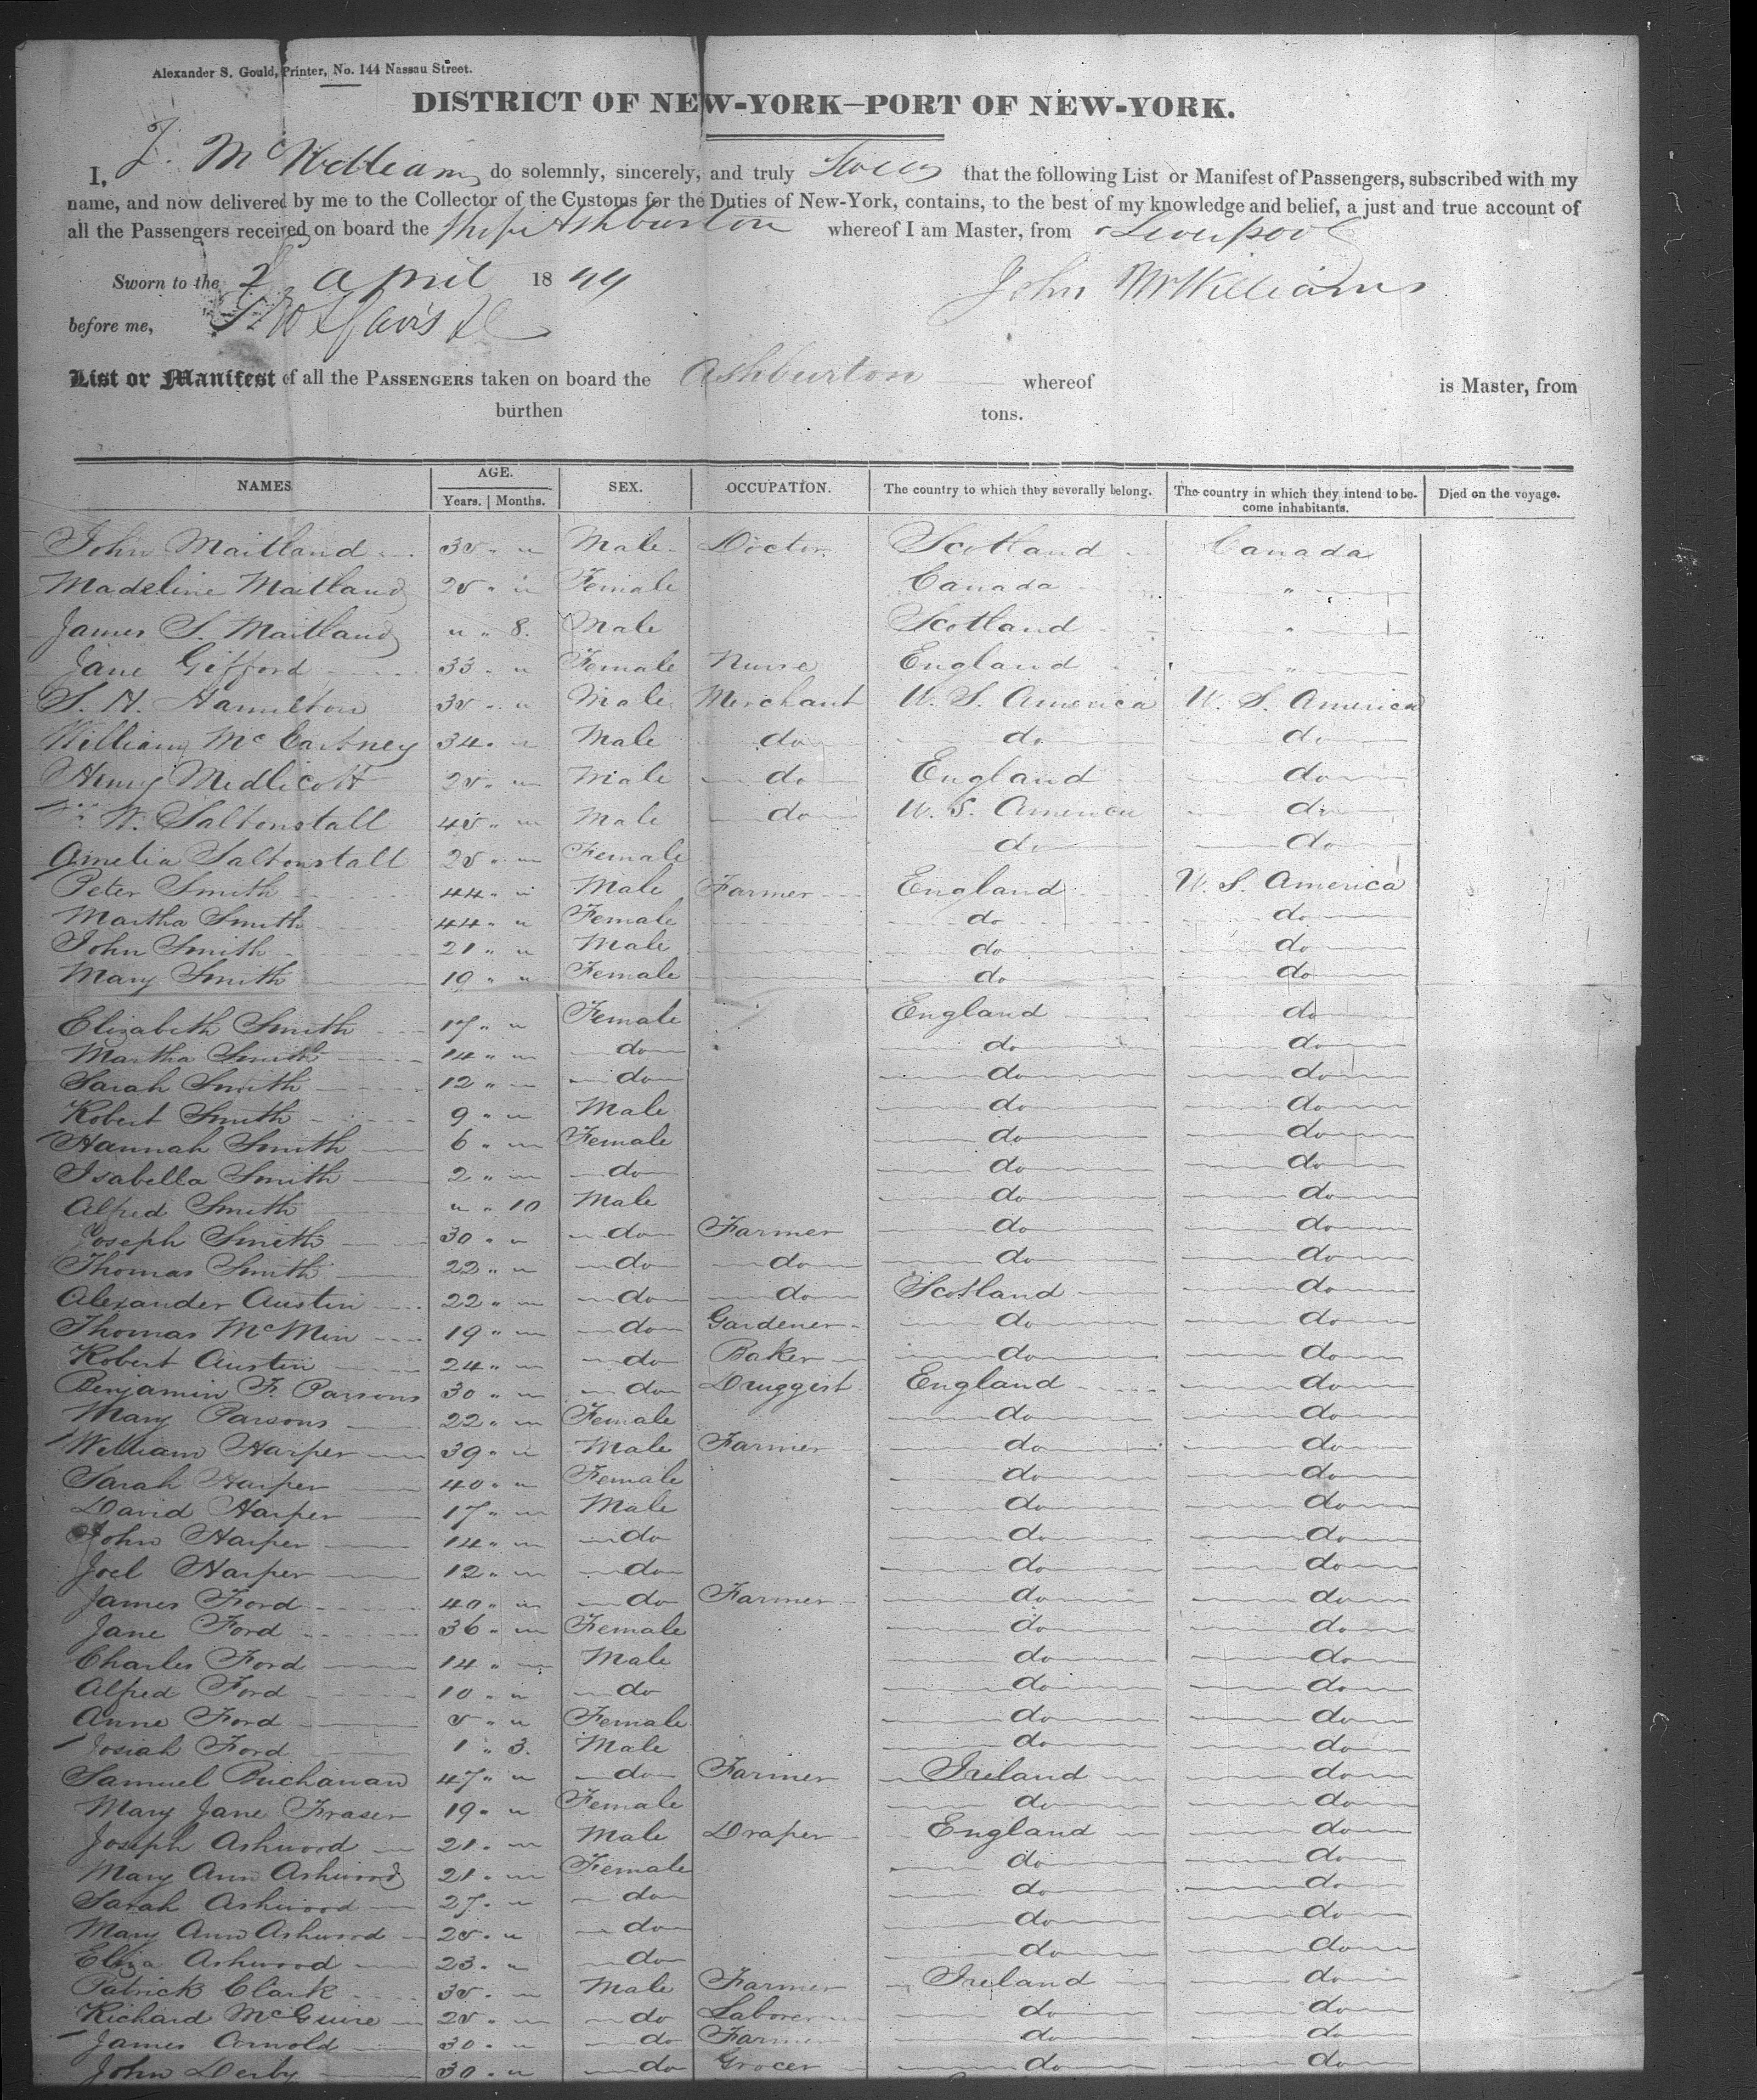 Alexander S. Gould, Printer, No. 144 Nassau Street.
DISTRICT OF NEW-YORK—PORT OF NEW-YORK.
I, J. McWilliams do solemnly, sincerely, and truly Swear that the following List or Manifest of Passengers, subscribed with my
name, and now delivered by me to the Collector of the Customs for the Duties of New-York, contains, to the best of my knowledge and belief, a just and true account of
all the Passengers received on board the Ship Ashburton whereof I am Master, from Liverpool
Sworn to the 2 April 18 49 John McWilliams
before me,
List or Manifest of all the PASSENGERS taken on board the Ashburton whereof is Master, from
burthen tons.
NAMES AGE. Years. Months. SEX. OCCUPATION. The country to which they severally belong. The country in which they intend to become inhabitants. Died on the voyage.
John Maitland 35 " Male Doctor Scotland Canada
Madeline Maitland 25 " Female Canada "
James S. Maitland " 8. Male Scotland "
Jane Gifford 33 " Female Nurse England "
S. H. Hamilton 35 " Male Merchant U. S. America U. S. America
William McCartney 34 " Male do do do
Henry Medlicott 25 " Male do England do
W. Saltonstall 45 " Male do U. S. America do
Amelia Saltonstall 25 " Female do do
Peter Smith 44 " Male Farmer England U. S. America
Martha Smith 44 " Female do do
John Smith 21 " Male do do
Mary Smith 19 " Female do do
Elizabeth Smith 17 " Female England do
Martha Smith 14 " do do do
Sarah Smith 12 " do do do
Robert Smith 9 " Male do do
Hannah Smith 6 " Female do do
Isabella Smith 2 " do do do
Alfred Smith " 10 Male do do
Joseph Smith 30 " do Farmer do do
Thomas Smith 22 " do do do do
Alexander Austin 22 " do do Scotland do
Thomas McMin 19 " do Gardener do do
Robert Austin 24 " do Baker do do
Benjamin F. Parsons 30 " do Druggist England do
Mary Parsons 22 " Female do do
William Harper 39 " Male Farmer do do
Sarah Harper 40 " Female do do
David Harper 17 " Male do do
John Harper 14 " do do do
Joel Harper 12 " do do do
James Ford 40 " do Farmer do do
Jane Ford 36 " Female do do
Charles Ford 14 " Male do do
Alfred Ford 10 " do do do
Anne Ford 5 " Female do do
Josiah Ford 1 " 3. Male do do
Samuel Buchanan 47 " do Farmer Ireland do
Mary Jane Fraser 19 " Female do do
Joseph Ashwood 21 " Male Draper England do
Mary Ann Ashwood 21 " Female do do
Sarah Ashwood 27 " do do do
Mary Ann Ashwood 25 " do do do
Eliza Ashwood 23 " do do do
Patrick Clark 35 " Male Farmer Ireland do
Richard McGuire 25 " do Laborer do do
James Arnold 30 " do Farmer do do
John Derby 30 " do Grocer do do